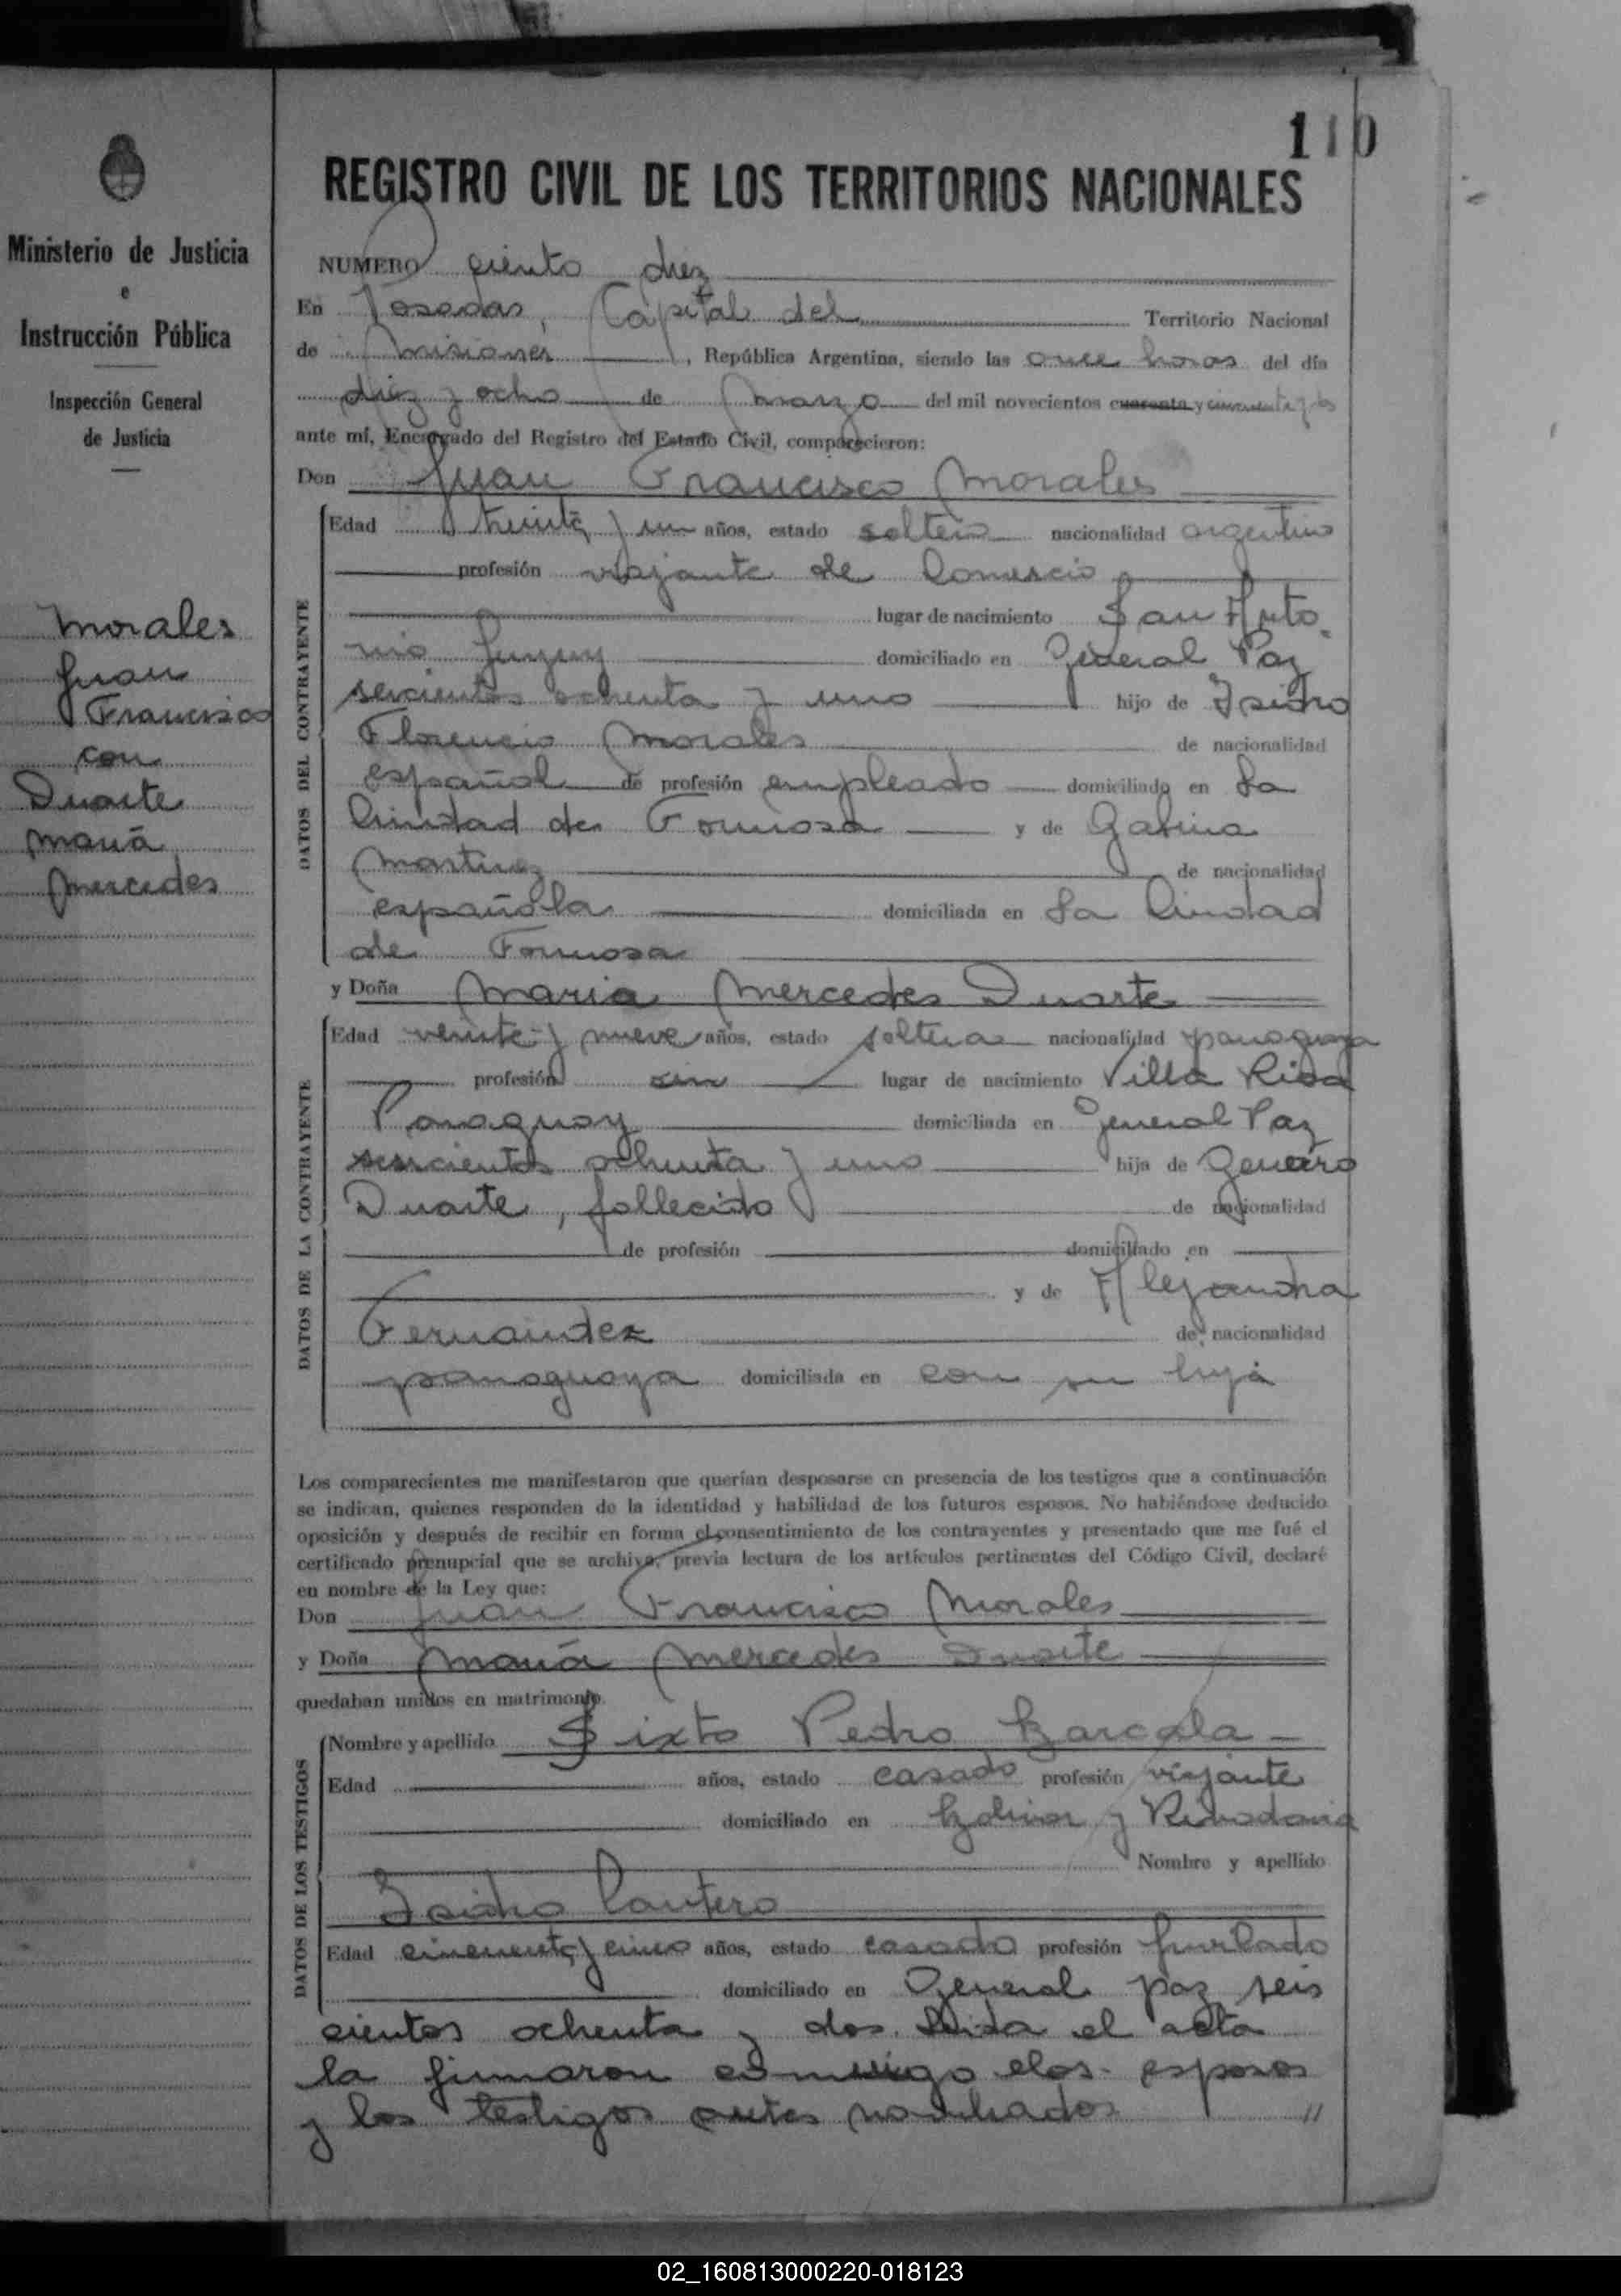 110
REGISTRO CIVIL DE LOS TERRITORIOS NACIONALES
Ministerio de Justicia
e
Instrucción Pública
Inspección General
de Justicia
Morales
Juan
Francisco
con
Duarte
María
Mercedes
NUMERO ciento diez
En Posadas, Capital del Territorio Nacional
de Misiones, República Argentina, siendo las once horas del día
diez y ocho de Marzo del mil novecientos cuarenta y cincuenta y
ante mí, Encargado del Registro del Estado Civil, comparecieron:
Don Juan Francisco Morales
DATOS DEL CONTRAYENTE
Edad treinta y un años, estado soltero nacionalidad argentino
profesión viajante de Comercio
lugar de nacimiento San Anto
nio Jujuy domiciliado en General Paz
seiscientos ochenta y uno hijo de Isidro
Florencio Morales de nacionalidad
español de profesión empleado domiciliado en La
Ciudad de Formosa y de Gabina
Martinez de nacionalidad
española domiciliada en La Ciudad
de Formosa
y Doña Maria Mercedes Duarte
DATOS DE LA CONTRAYENTE
Edad veinte y nueve años, estado soltera nacionalidad paraguaya
profesión sin lugar de nacimiento Villa Rica
Paraguay domiciliada en General Paz
seiscientos ochenta y uno hija de Genaro
Duarte, fallecido de nacionalidad
de profesión domiciliado en
y de Alejandra
Fernandez de nacionalidad
paraguaya domiciliada en con su hija
Los comparecientes me manifestaron que querían desposarse en presencia de los testigos que a continuación
se indican, quienes responden de la identidad y habilidad de los futuros esposos. No habiéndose deducido
oposición y después de recibir en forma el consentimiento de los contrayentes y presentado que me fué el
certificado prenupcial que se archiva, previa lectura de los artículos pertinentes del Código Civil, declaré
en nombre de la Ley que:
Don Juan Francisco Morales
y Doña María Mercedes Duarte
quedaban unidos en matrimonio.
DATOS DE LOS TESTIGOS
Nombre y apellido Sixto Pedro Barcala
Edad años, estado casado profesión viajante
domiciliado en Bolivar y Rivadavia
Nombre y apellido
Isidro Cantero
Edad cincuenta y cinco años, estado casado profesión jubilado
domiciliado en General paz seis
cientos ochenta y dos. Leida el acta
la firmaron conmigo los esposos
y los testigos antes nombrados //
02_160813000220-018123